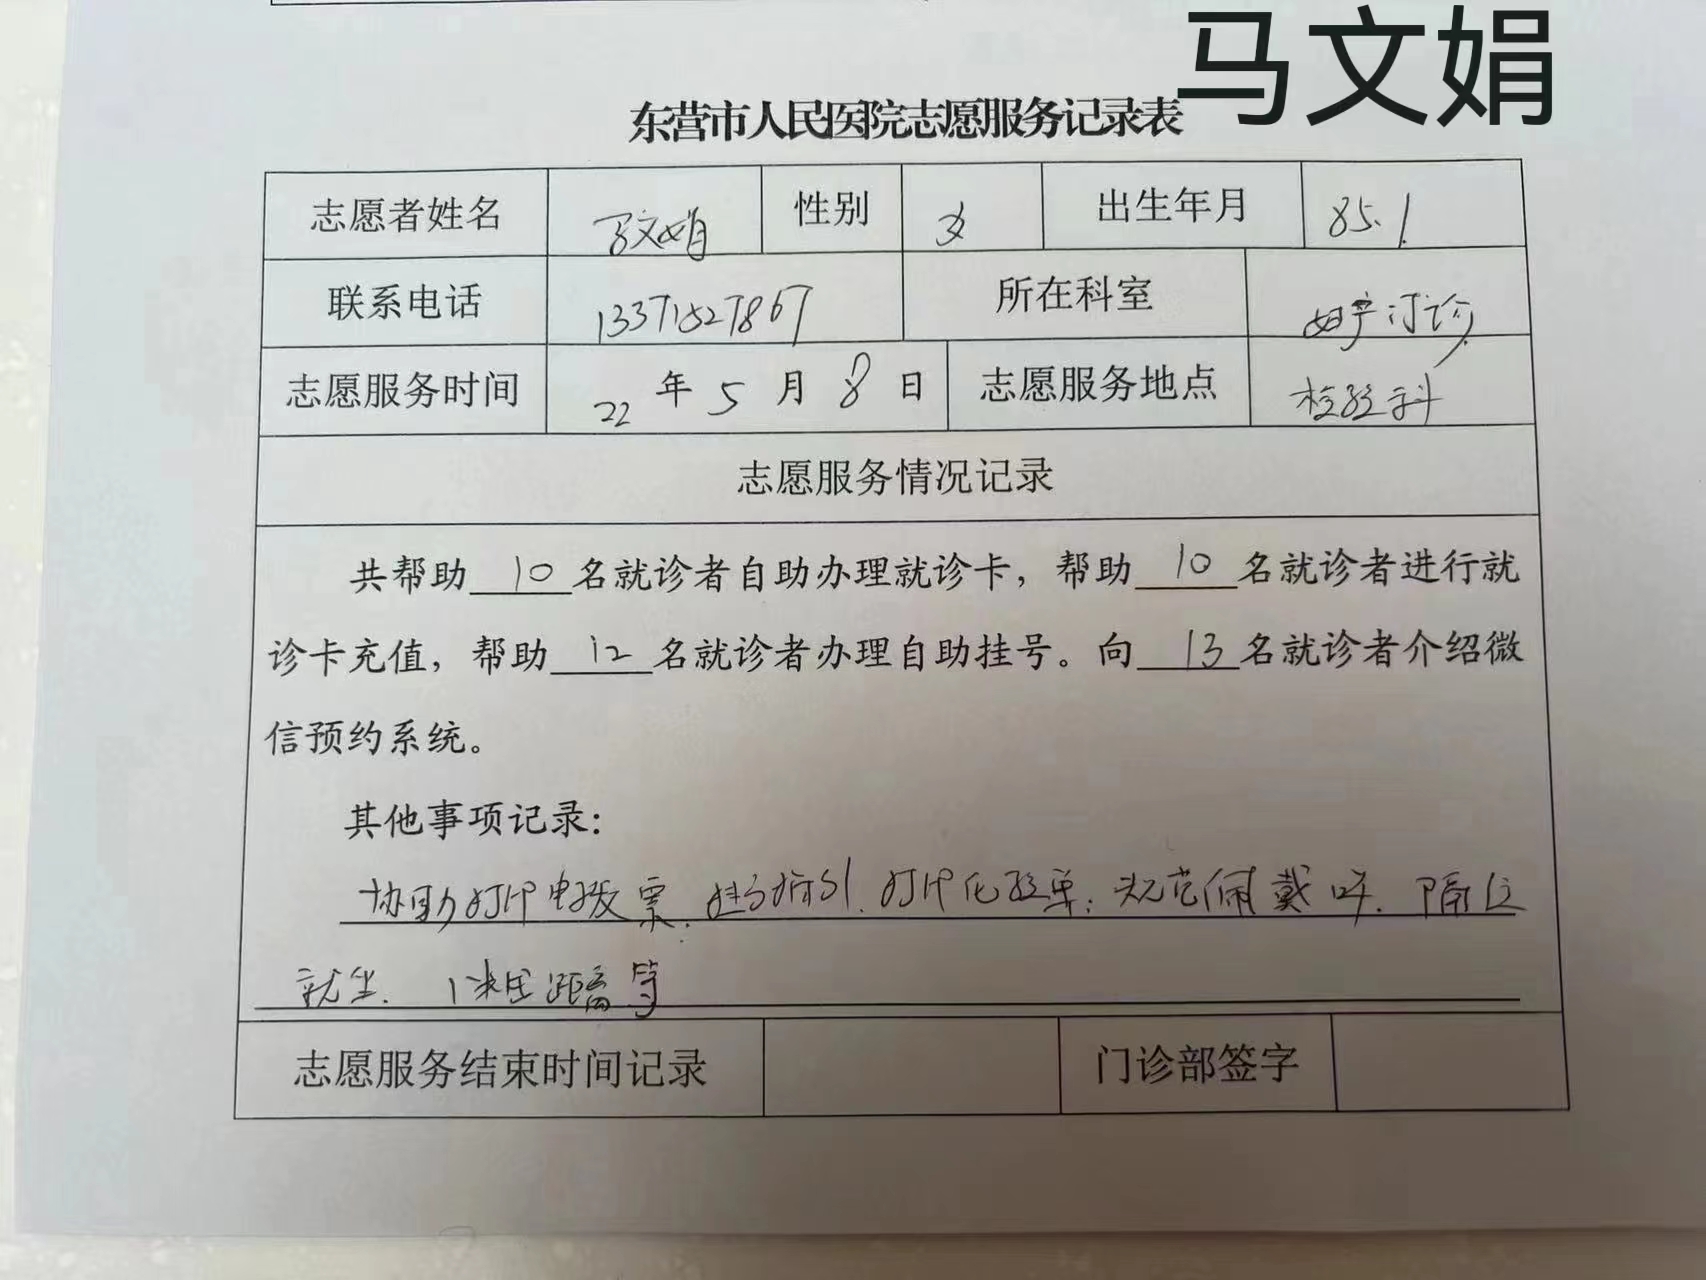 马文娟
东营市人民医院志愿服务记录表
志愿者姓名 马文娟 性别 女 出生年月 85.1
联系电话 13371527867 所在科室 妇产门诊
志愿服务时间 22年5月8日 志愿服务地点 检验科
志愿服务情况记录
共帮助10名就诊者自助办理就诊卡，帮助10名就诊者进行就
诊卡充值，帮助12名就诊者办理自助挂号。向13名就诊者介绍微
信预约系统。
其他事项记录：
协助打印电子发票. 打印化验单；规范佩戴口罩. 隔位
就坐. 1米距离等
志愿服务结束时间记录 门诊部签字